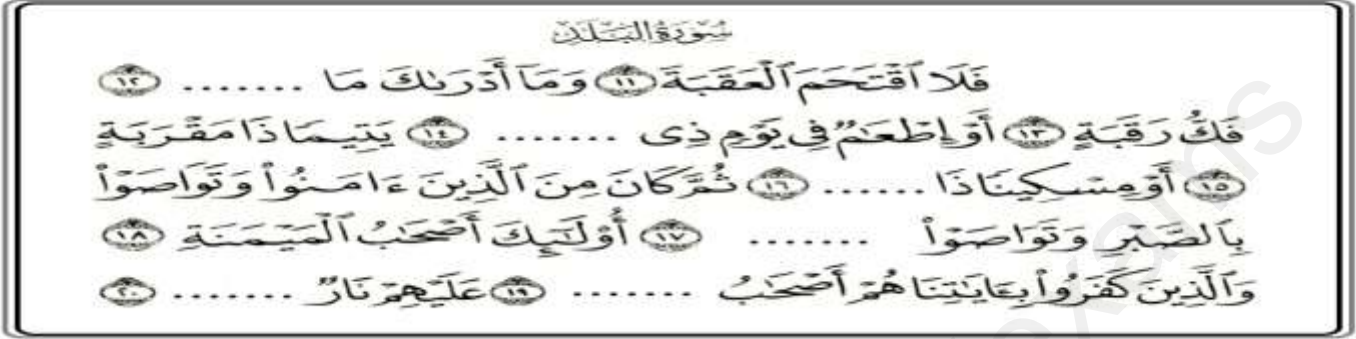 سُورَةُ البَلَدِ
فَلَا ٱقْتَحَمَ ٱلْعَقَبَةَ ١١ وَمَآ أَدْرَىٰكَ مَا ....... ١٢
فَكُّ رَقَبَةٍ ١٣ أَوْ إِطْعَٰمٌ فِى يَوْمٍ ذِى ....... ١٤ يَتِيمًا ذَا مَقْرَبَةٍ
١٥ أَوْ مِسْكِينًا ذَا ...... ١٦ ثُمَّ كَانَ مِنَ ٱلَّذِينَ ءَامَنُوا۟ وَتَوَاصَوْا۟
بِٱلصَّبْرِ وَتَوَاصَوْا۟ ....... ١٧ أُو۟لَٰٓئِكَ أَصْحَٰبُ ٱلْمَيْمَنَةِ ١٨
وَٱلَّذِينَ كَفَرُوا۟ بِـَٔايَٰتِنَا هُمْ أَصْحَٰبُ ....... ١٩ عَلَيْهِمْ نَارٌ ....... ٢٠